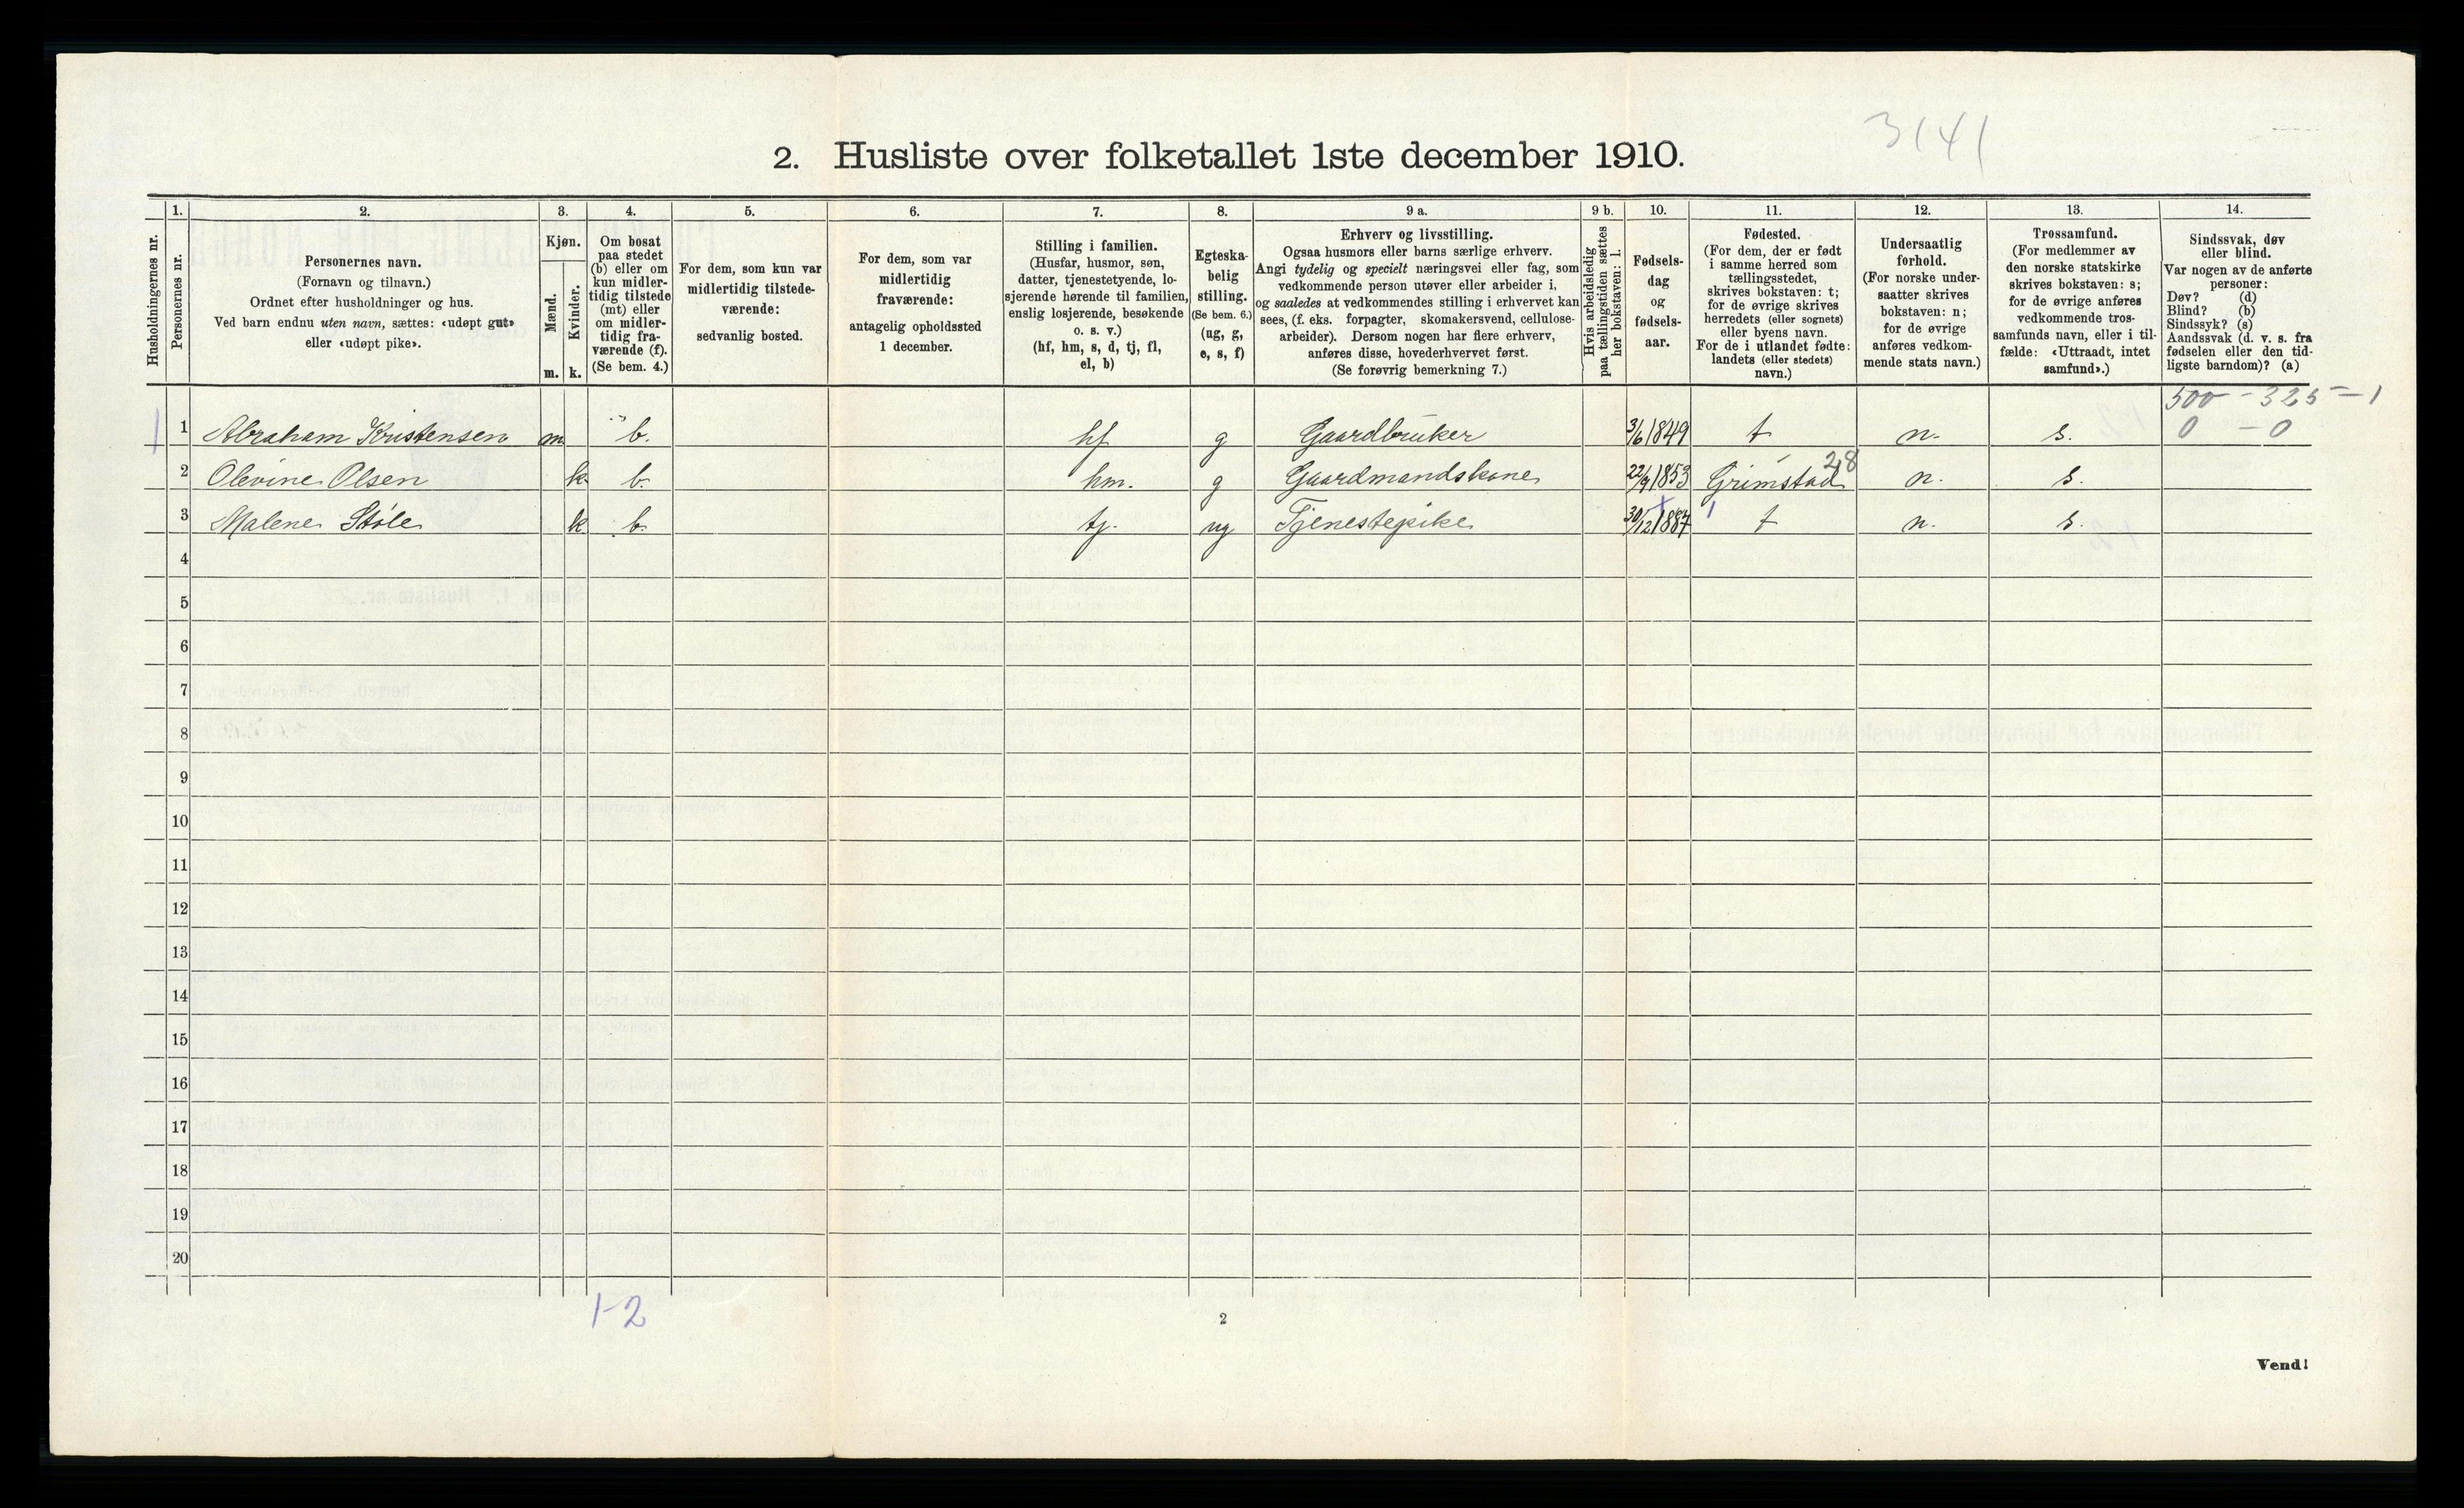 3141
2. Husliste over folketallet 1ste december 1910.
Husholdningernes nr.
1.
Personernes nr.
2.
Personernes navn.
(Fornavn og tilnavn.)
Ordnet efter husholdninger og hus.
Ved barn endnu uten navn, sættes: «udøpt gut»
eller «udøpt pike».
3.
Kjøn.
Mænd.
Kvinder.
m. k.
4.
Om bosat
paa stedet
(b) eller om
kun midler-
tidig tilstede
(mt) eller
om midler-
tidig fra-
værende (f).
(Se bem. 4.)
5.
For dem, som kun var
midlertidig tilstede-
værende:
sedvanlig bosted.
6.
For dem, som var
midlertidig
fraværende:
antagelig opholdssted
1 december.
7.
Stilling i familien.
(Husfar, husmor, søn,
datter, tjenestetyende, lo-
sjerende hørende til familien,
enslig losjerende, besøkende
o. s. v.)
(hf, hm, s, d, tj, fl,
el, b)
8.
Egteska-
belig
stilling.
(Se bem. 6.)
(ug, g,
e, s, f)
9 a.
Erhverv og livsstilling.
Ogsaa husmors eller barns særlige erhverv.
Angi tydelig og specielt næringsvei eller fag, som
vedkommende person utøver eller arbeider i,
og saaledes at vedkommendes stilling i erhvervet kan
sees, (f. eks. forpagter, skomakersvend, cellulose-
arbeider). Dersom nogen har flere erhverv,
anføres disse, hovederhvervet først.
(Se forøvrig bemerkning 7.)
9 b.
Hvis arbeidsledig
paa tællingstiden sættes
her bokstaven: l.
10.
Fødsels-
dag
og
fødsels-
aar.
11.
Fødested.
(For dem, der er født
i samme herred som
tællingsstedet,
skrives bokstaven: t;
for de øvrige skrives
herredets (eller sognets)
eller byens navn.
For de i utlandet fødte:
landets (eller stedets)
navn.)
12.
Undersaatlig
forhold.
(For norske under-
saatter skrives
bokstaven: n;
for de øvrige
anføres vedkom-
mende stats navn.)
13.
Trossamfund.
(For medlemmer av
den norske statskirke
skrives bokstaven: s;
for de øvrige anføres
vedkommende tros-
samfunds navn, eller i til-
fælde: «Uttraadt, intet
samfund».)
14.
Sindssvak, døv
eller blind.
Var nogen av de anførte
personer:
Døv? (d)
Blind? (b)
Sindssyk? (s)
Aandssvak (d. v. s. fra
fødselen eller den tid-
ligste barndom)? (a)
500 - 325 - 1
0 - 0
1 1 Abraham Kristensen m b. hf g Gaardbruker 3/6 1849 t n. s.
2 Olevine Olsen k b. hm. g Gaardmandskone 22/9 1853 Grimstad 28 n. s.
3 Malene Støle k b. tj. ug Tjenestepike 30/12 1887 1 t n. s.
4
5
6
7
8
9
10
11
12
13
14
15
16
17
18
19
20
1-2
2
Vend!